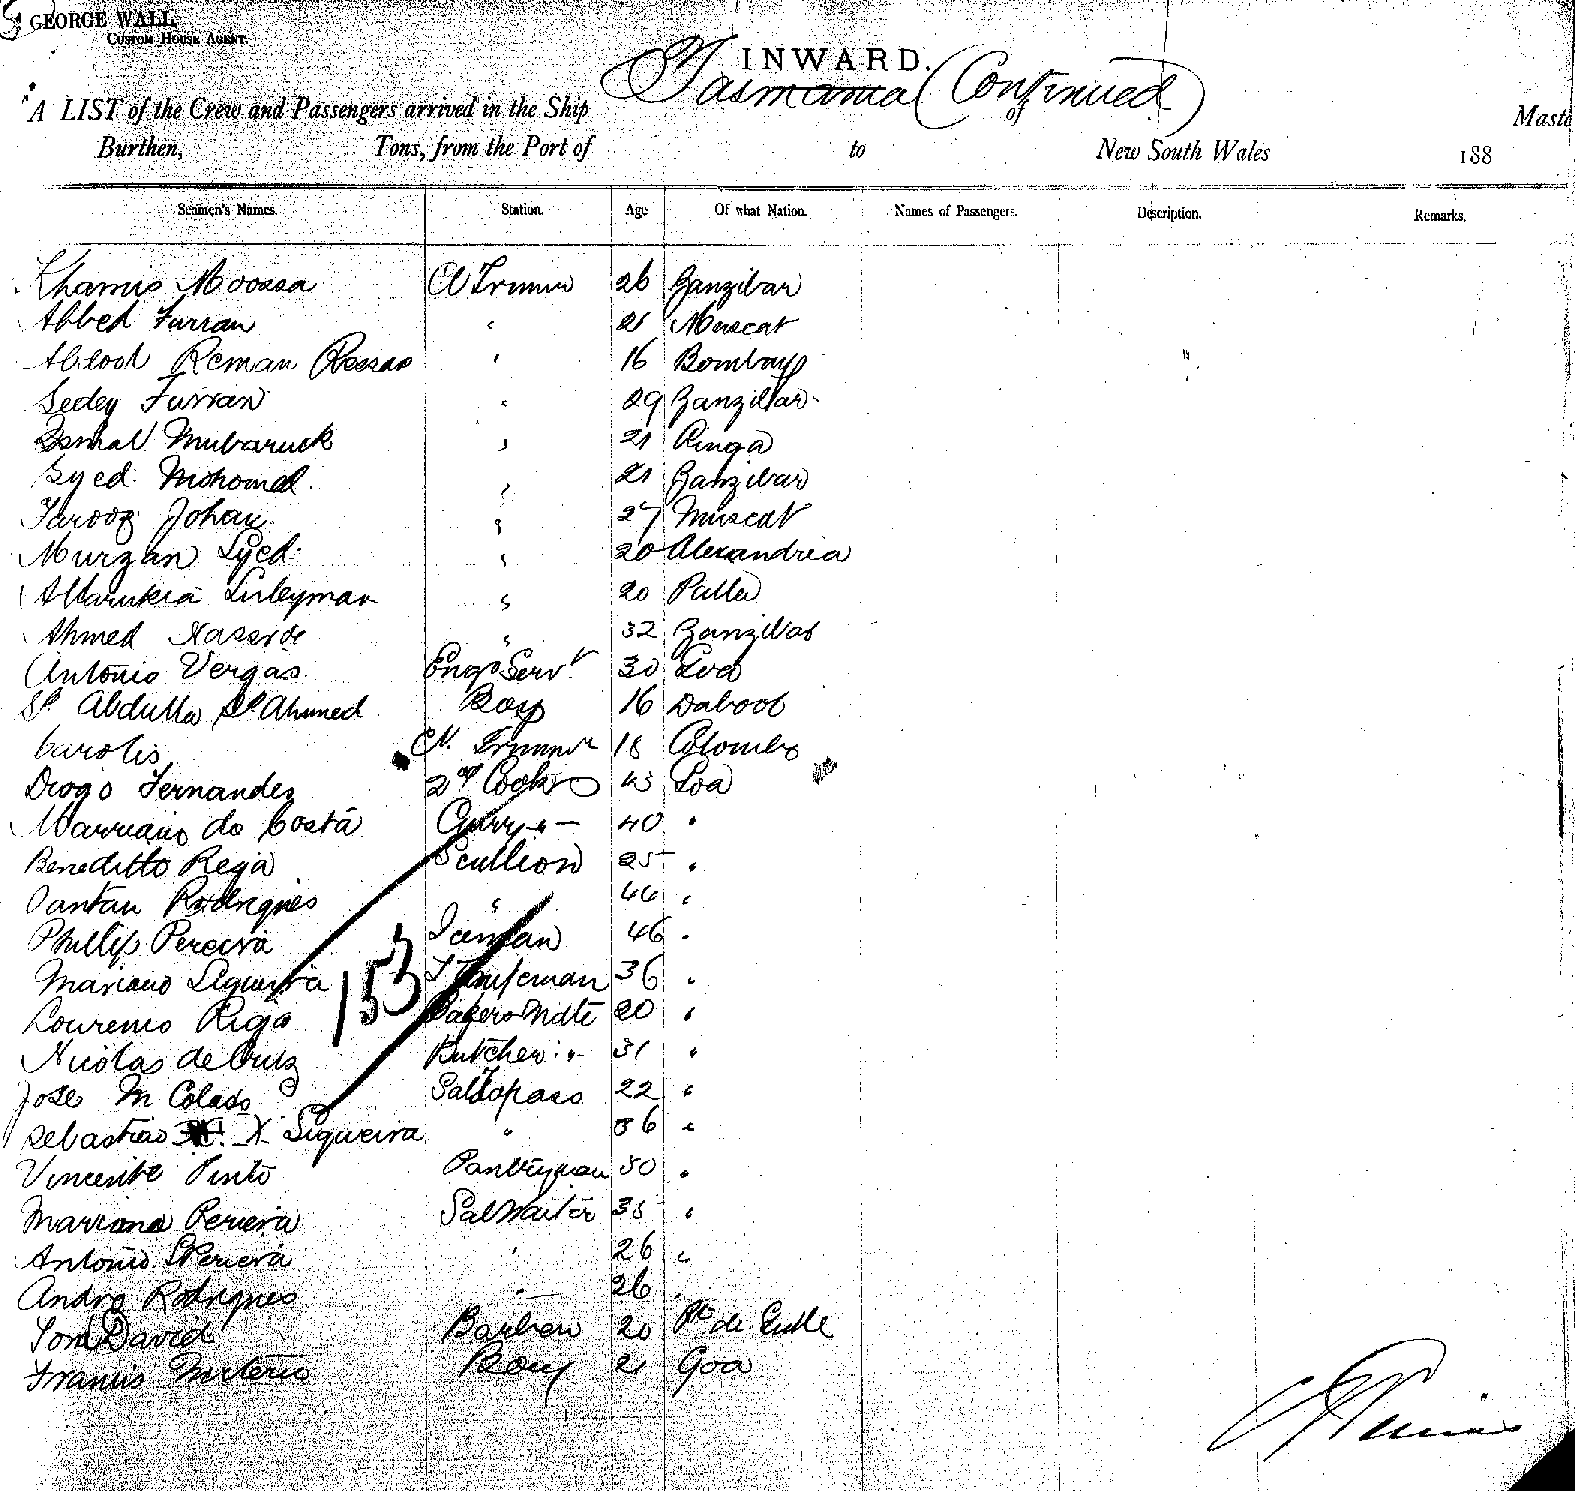 GEORGE WALL
CUSTOM HOUSE AGENT.
INWARD.
Tasmania (Continued)
A LIST of the Crew and Passengers arrived in the Ship of Maste
Burthen, Tons, from the Port of to New South Wales 188
Seamen's Names. Station. Age Of what Nation. Names of Passengers. Description. Remarks.
Khamis Moossa Cl Trimmer 26 Zanzibar
Abbed Furran " 21 Muscat
Abdool Reman " 16 Bombay
Sedey Furran " 29 Zanzibar
Ismal Mubaruck " 21
Syed Mohomed " 21 Zanzibar
Farooz Johan " 27 Muscat
Murzan Syed " 20 Alexandria
Suleyman " 20
Ahmed " 32 Zanzibar
Antonio Vergas Engrs Servt 30 Goa
Sk Abdulla Sk Ahmed Boy 16 Dabool
Carolis Cl Trimmer 18 Colombo
Diogo Fernandez 2nd Cook 43 Goa
Marriano do Costa Curry " 40 "
Beneditto Rega Scullion 25 "
Santan Rodrigues " 46 "
Phillip Pereira 46 "
Mariano Siqueira 36 "
153
Lourenco Rigo Bakers Mate 20 "
Nicolas de Cruz Butcher " 31 "
Jose M Colaso Sal Topass 22 "
Sebastiao X Siqueira " 36 "
Vincente Pinto Pantryman 30 "
Marriana Periera Sal Waiter 35 "
Antonio Periera " 26 "
Andre Rodrigues " 26 "
Tom David Barber 20 Pte de Galle
Francis Boy 21 Goa